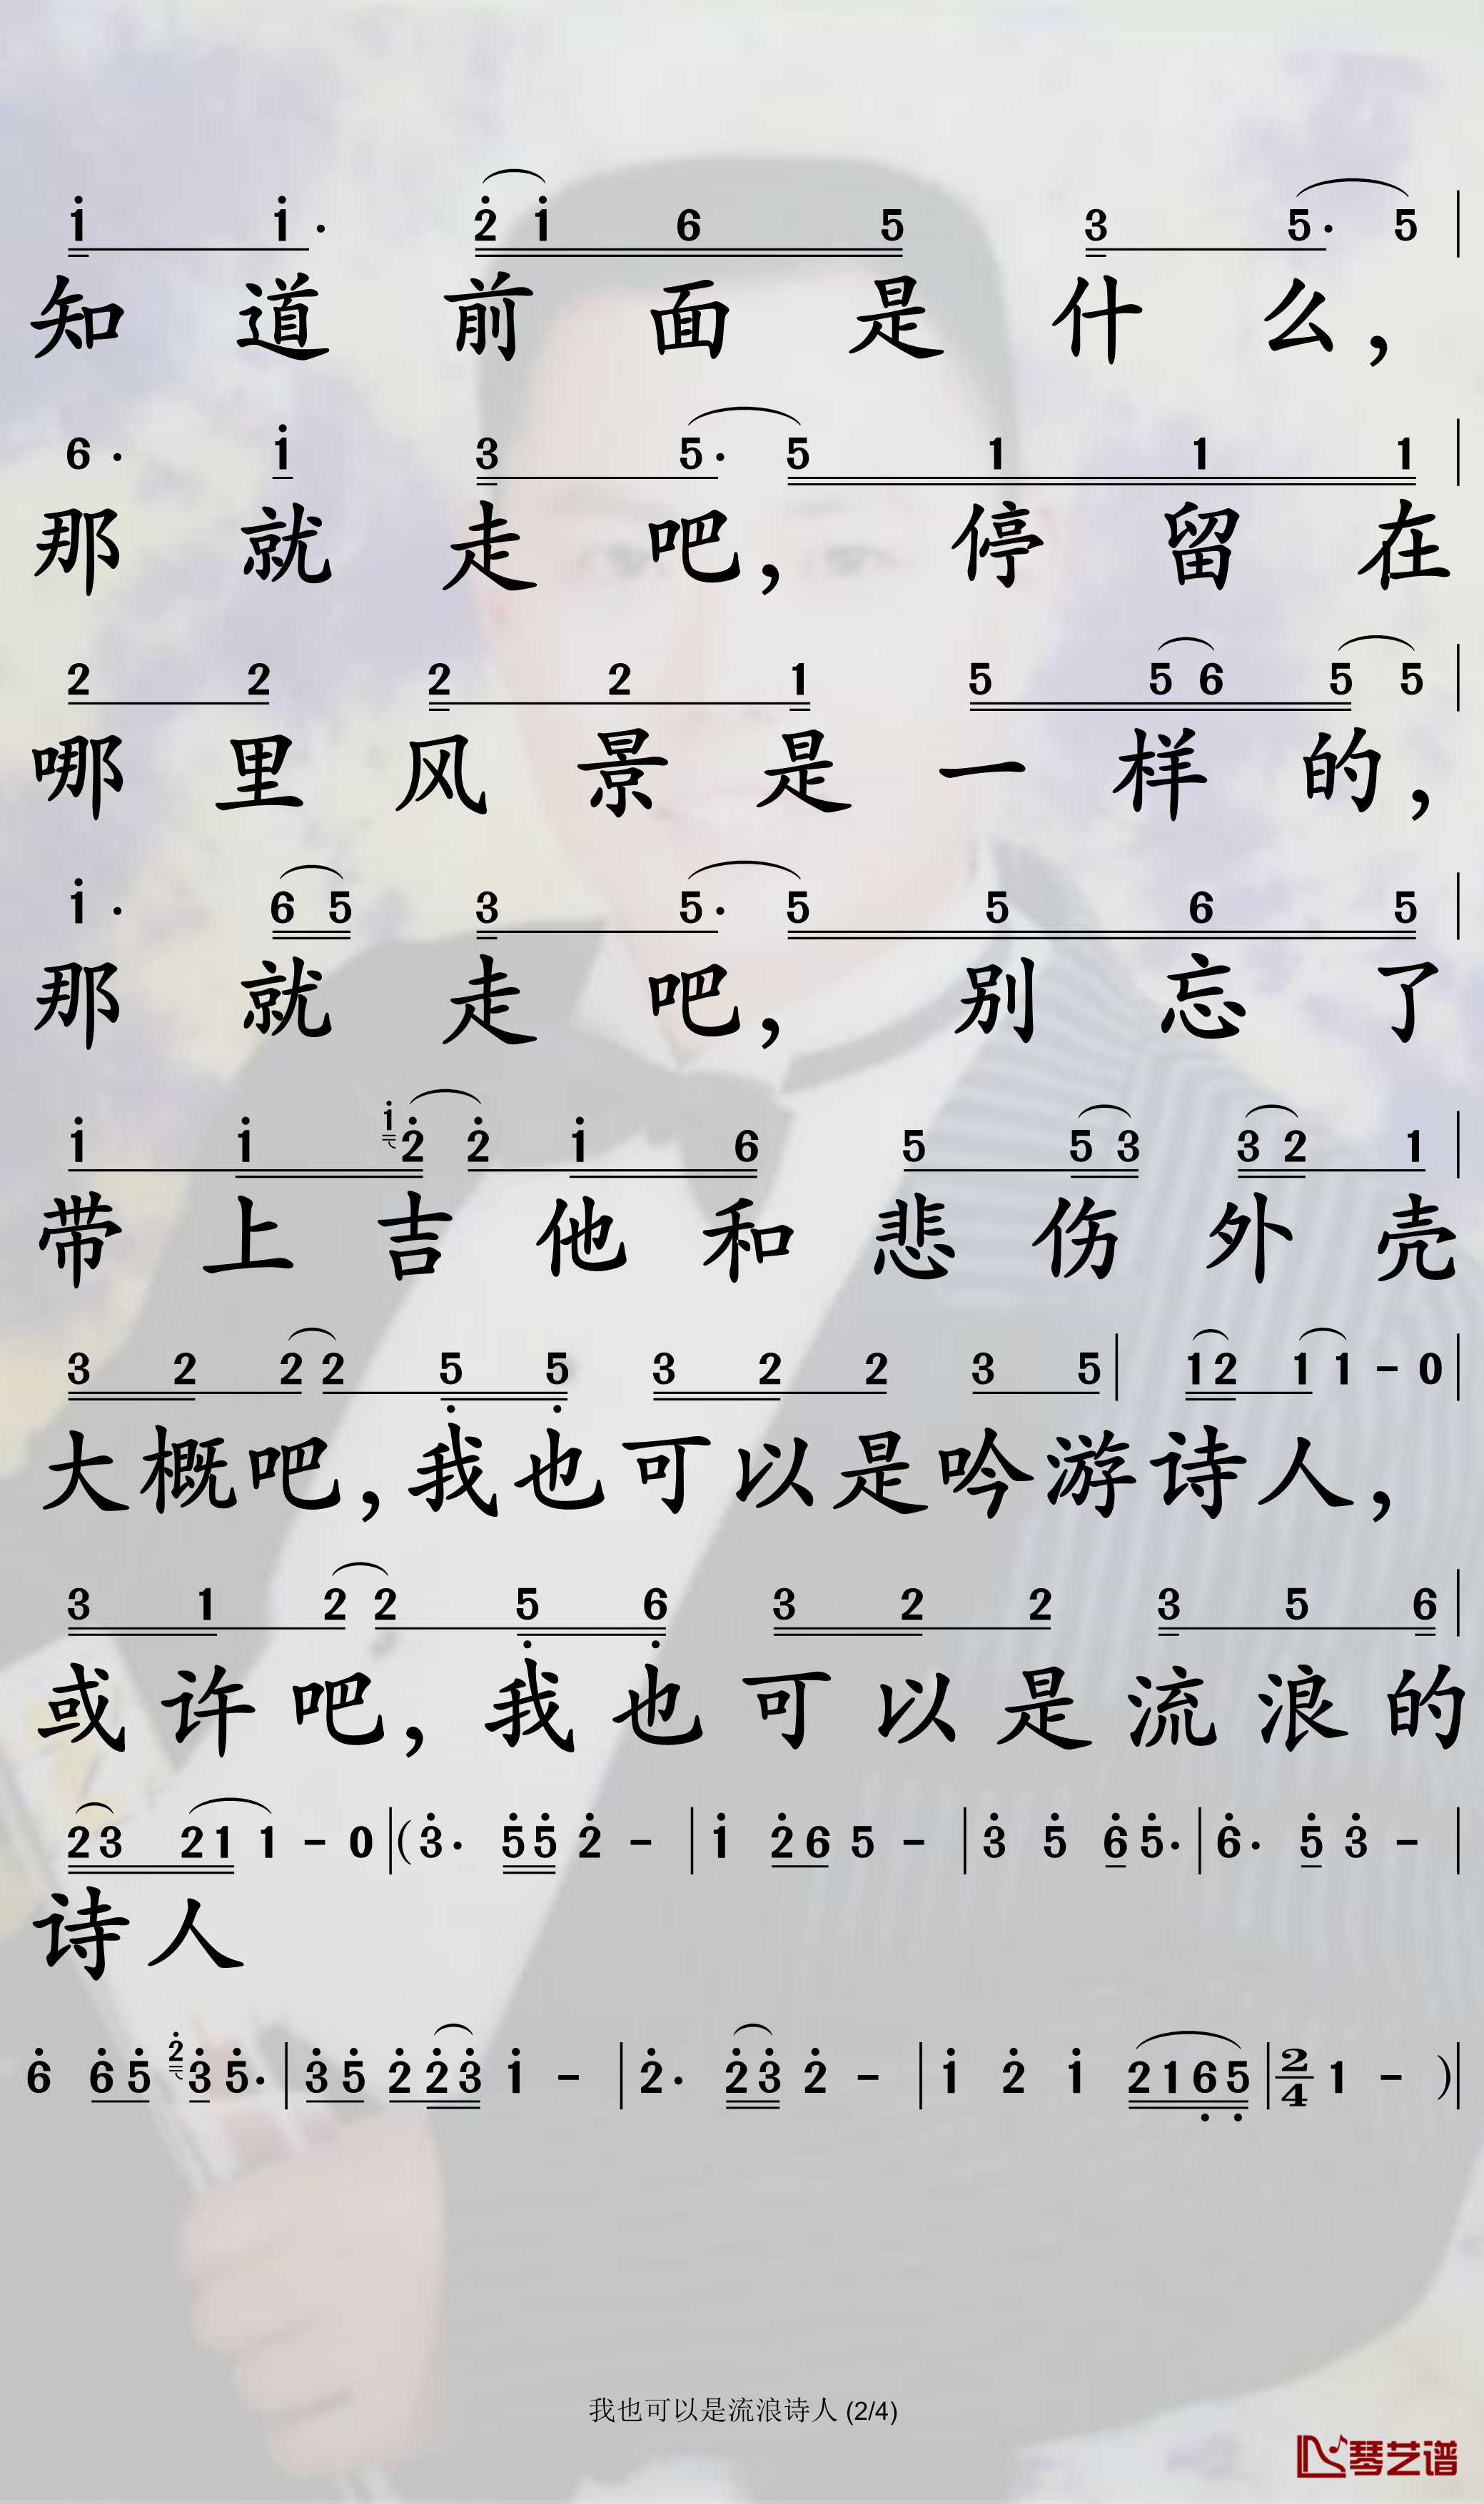 1̇ 1̇· 2̇ 1̇ 6 5 3 5· 5 |
知道前面是什么，
6· 1̇ 3 5· 5 1 1 1 |
那就走吧，停留在
2 2 2 2 1 5 5 6 5 5 |
哪里风景是一样的，
1̇· 6 5 3 5· 5 5 6 5 |
那就走吧，别忘了
1̇ 1̇ 1̇ 2̇ 2̇ 1̇ 6 5 5 3 3 2 1 |
带上吉他和悲伤外壳
3 2 2 2 5̣ 5̣ 3 2 2 3 5 | 1 2 1 1 - 0 |
大概吧，我也可以是吟游诗人，
3 1 2 2 5̣ 6̣ 3 2 2 3 5 6 |
或许吧，我也可以是流浪的
2 3 2 1 1 - 0 | (3̇· 5̇ 5̇ 2̇ - | 1̇ 2̇ 6 5 - | 3̇ 5̇ 6̇ 5̇· | 6̇· 5̇ 3̇ - |
诗人
6̇ 6̇ 5̇ 2̇ 3̇ 5̇· | 3̇ 5̇ 2̇ 2̇ 3̇ 1̇ - | 2̇· 2̇ 3̇ 2̇ - | 1̇ 2̇ 1̇ 2 1 6̣ 5̣ | 2/4 1 - ) |
我也可以是流浪诗人 (2/4)
琴艺谱